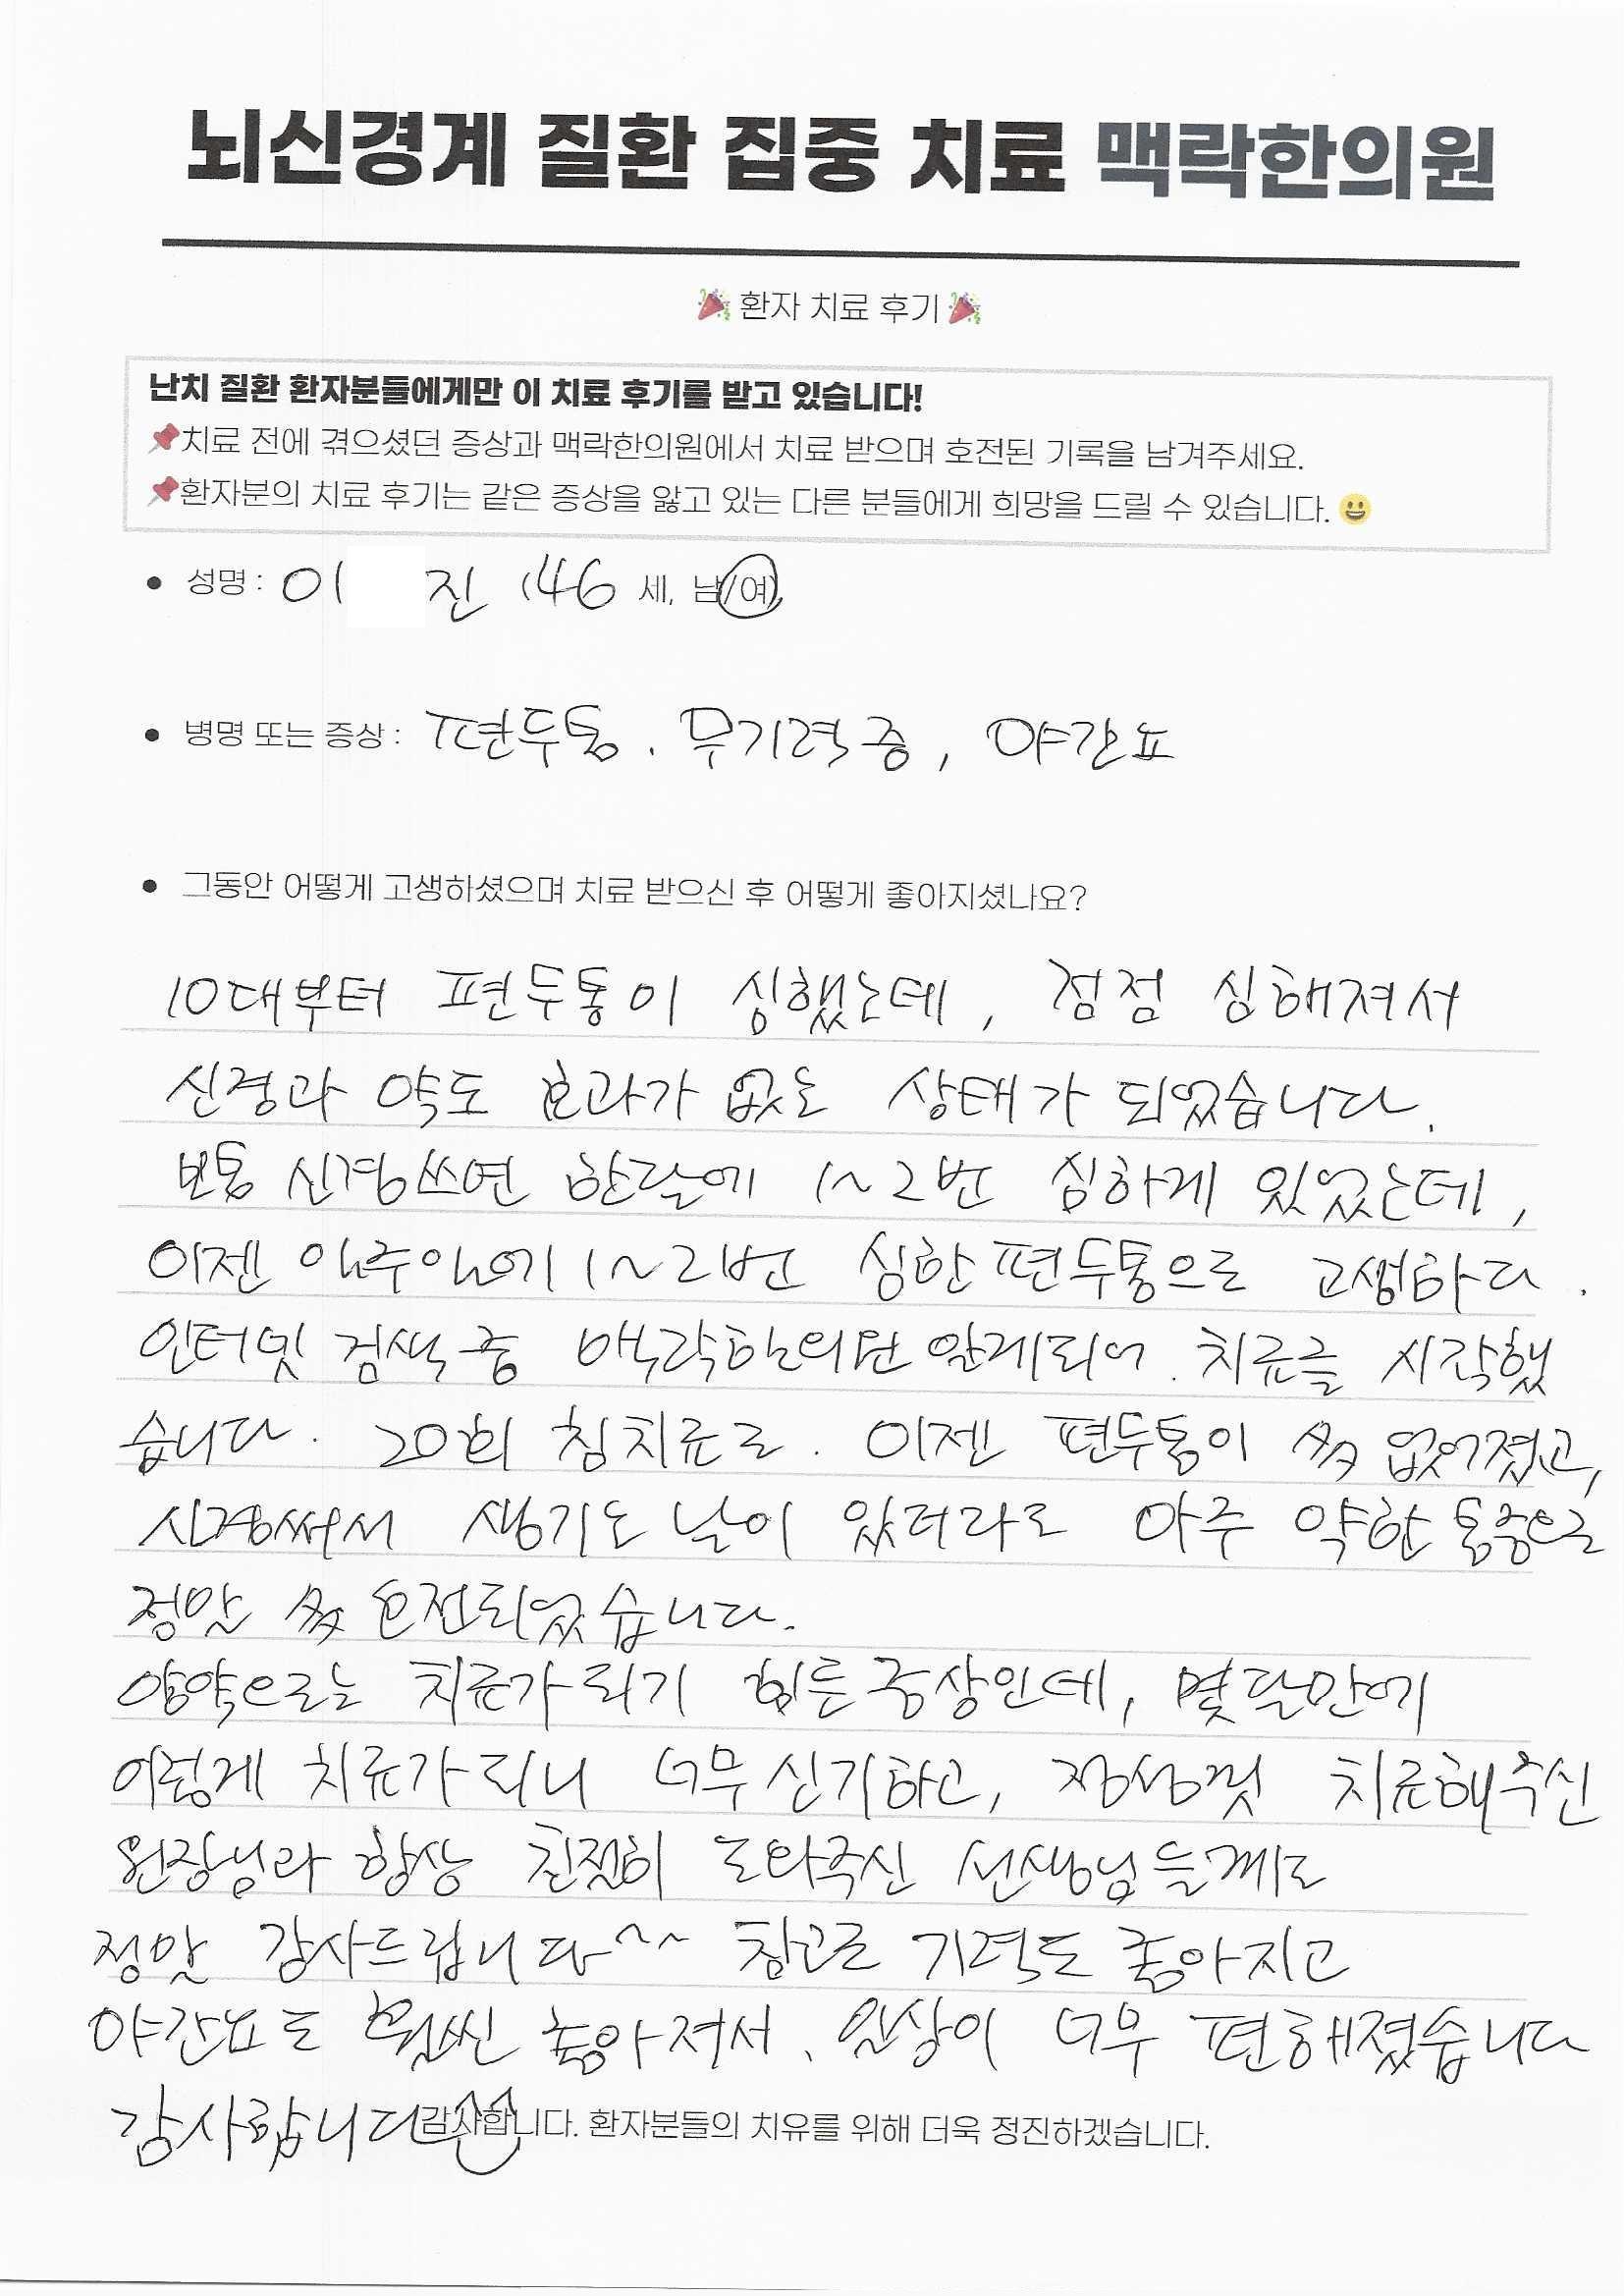 뇌신경계 질환 집중 치료 맥락한의원
🎉 환자 치료 후기 🎉
난치 질환 환자분들에게만 이 치료 후기를 받고 있습니다!
📌치료 전에 겪으셨던 증상과 맥락한의원에서 치료 받으며 호전된 기록을 남겨주세요.
📌환자분의 치료 후기는 같은 증상을 앓고 있는 다른 분들에게 희망을 드릴 수 있습니다.😀
• 성명 : 이 진 (46 세, 남/여)
• 병명 또는 증상 : 편두통. 무기력증, 야간뇨
• 그동안 어떻게 고생하셨으며 치료 받으신 후 어떻게 좋아지셨나요?
10대부터 편두통이 심했는데, 점점 심해져서
신경과 약도 효과가 없는 상태가 되었습니다.
보통 신경쓰면 한달에 1~2번 심하게 있었는데,
이젠 일주일에 1~2번 심한편두통으로 고생하다.
인터넷 검색중 맥락한의원 알게되어. 치료를 시작했
습니다. 20회 침치료로. 이젠 편두통이 多 없어졌고,
신경써서 생기는 날이 있더라도 아주 약한 통증으로
정말 多 호전되었습니다.
양약으로는 치료가 되기 힘든증상인데, 몇달만에
이렇게 치료가 되니 너무 신기하고, 정성껏 치료해주신
원장님과 항상 친절히 도와주신 선생님들께도
정말 감사드립니다~~ 참고로 기력도 좋아지고
야간뇨도 훨씬 좋아져서. 일상이 너무 편해졌습니다
감사합니다
감사합니다. 환자분들의 치유를 위해 더욱 정진하겠습니다.